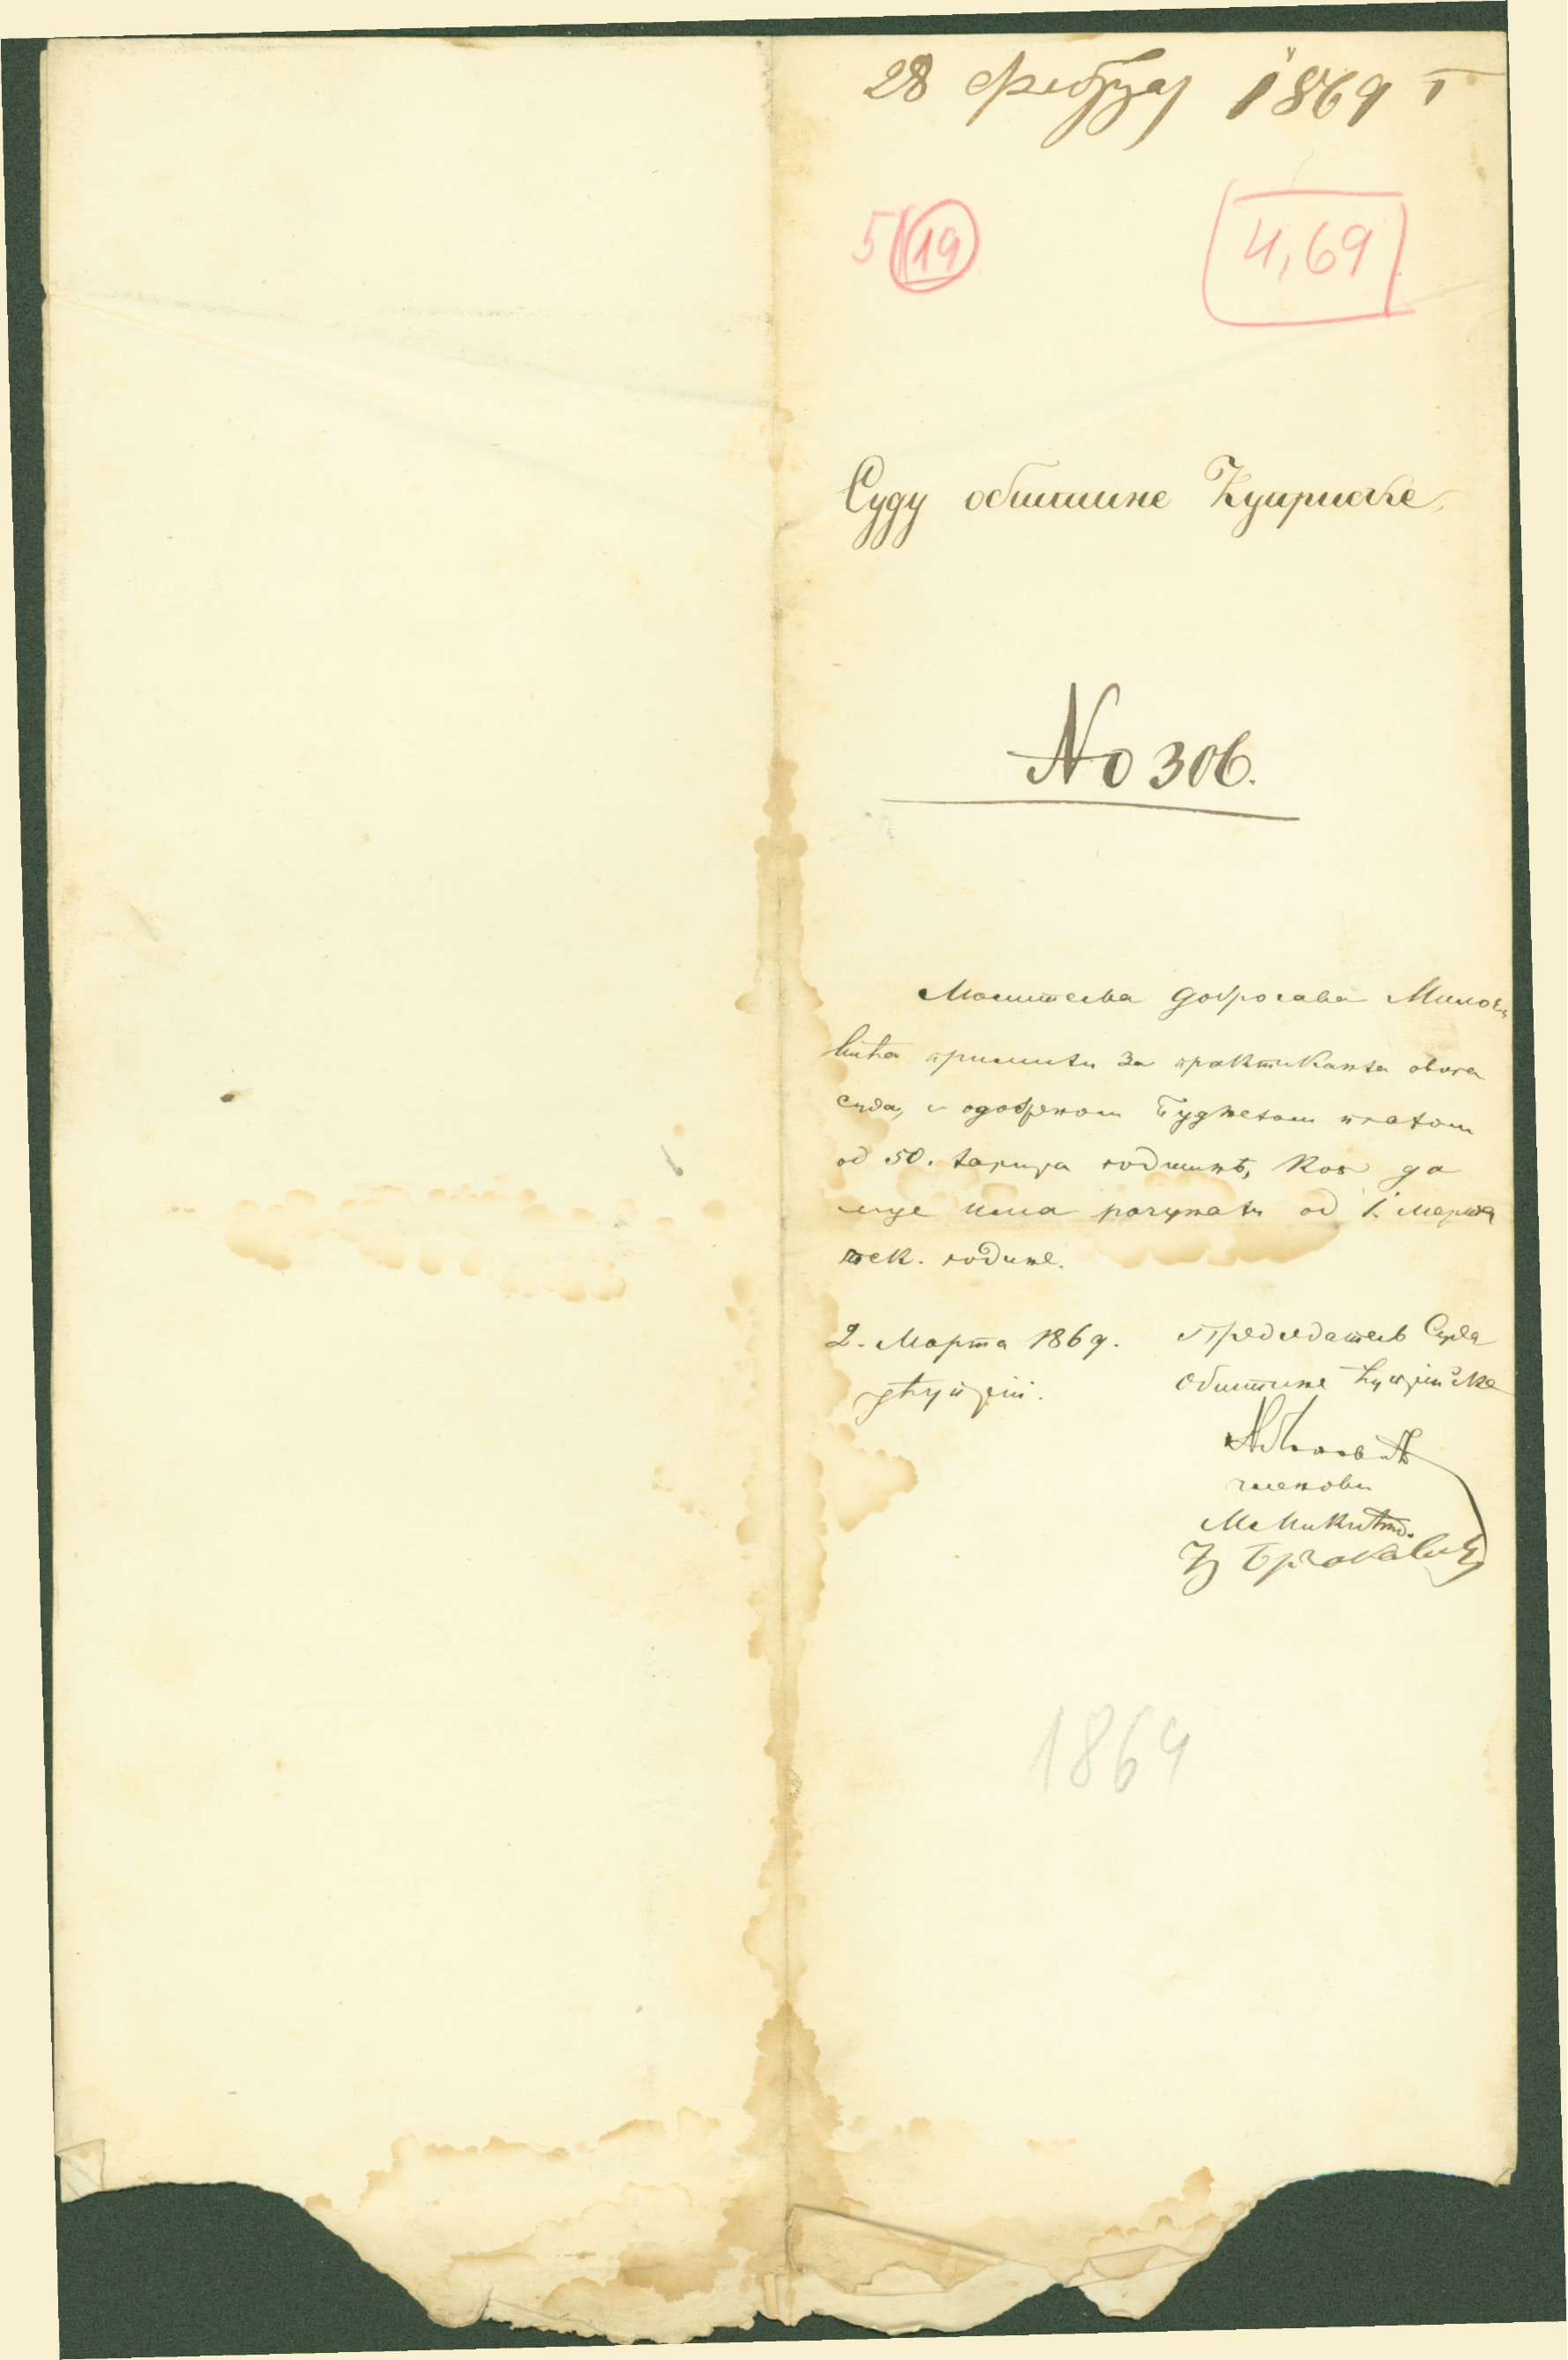 28 Фебруар 1869 г
5 19
4,69
Суду обштине Ћуприске
No 306.
Молитеља Добросава Мило
вића примити за практиканта овога
суда, с одобреном буџетом платом
од 50. талира годишнѣ, коя да
му се има рачунати од 1. Марта
тек. године.
2. Марта 1869. Председатель Суда
у Ћуприи. Обштине Ћуприйске
членови
1869